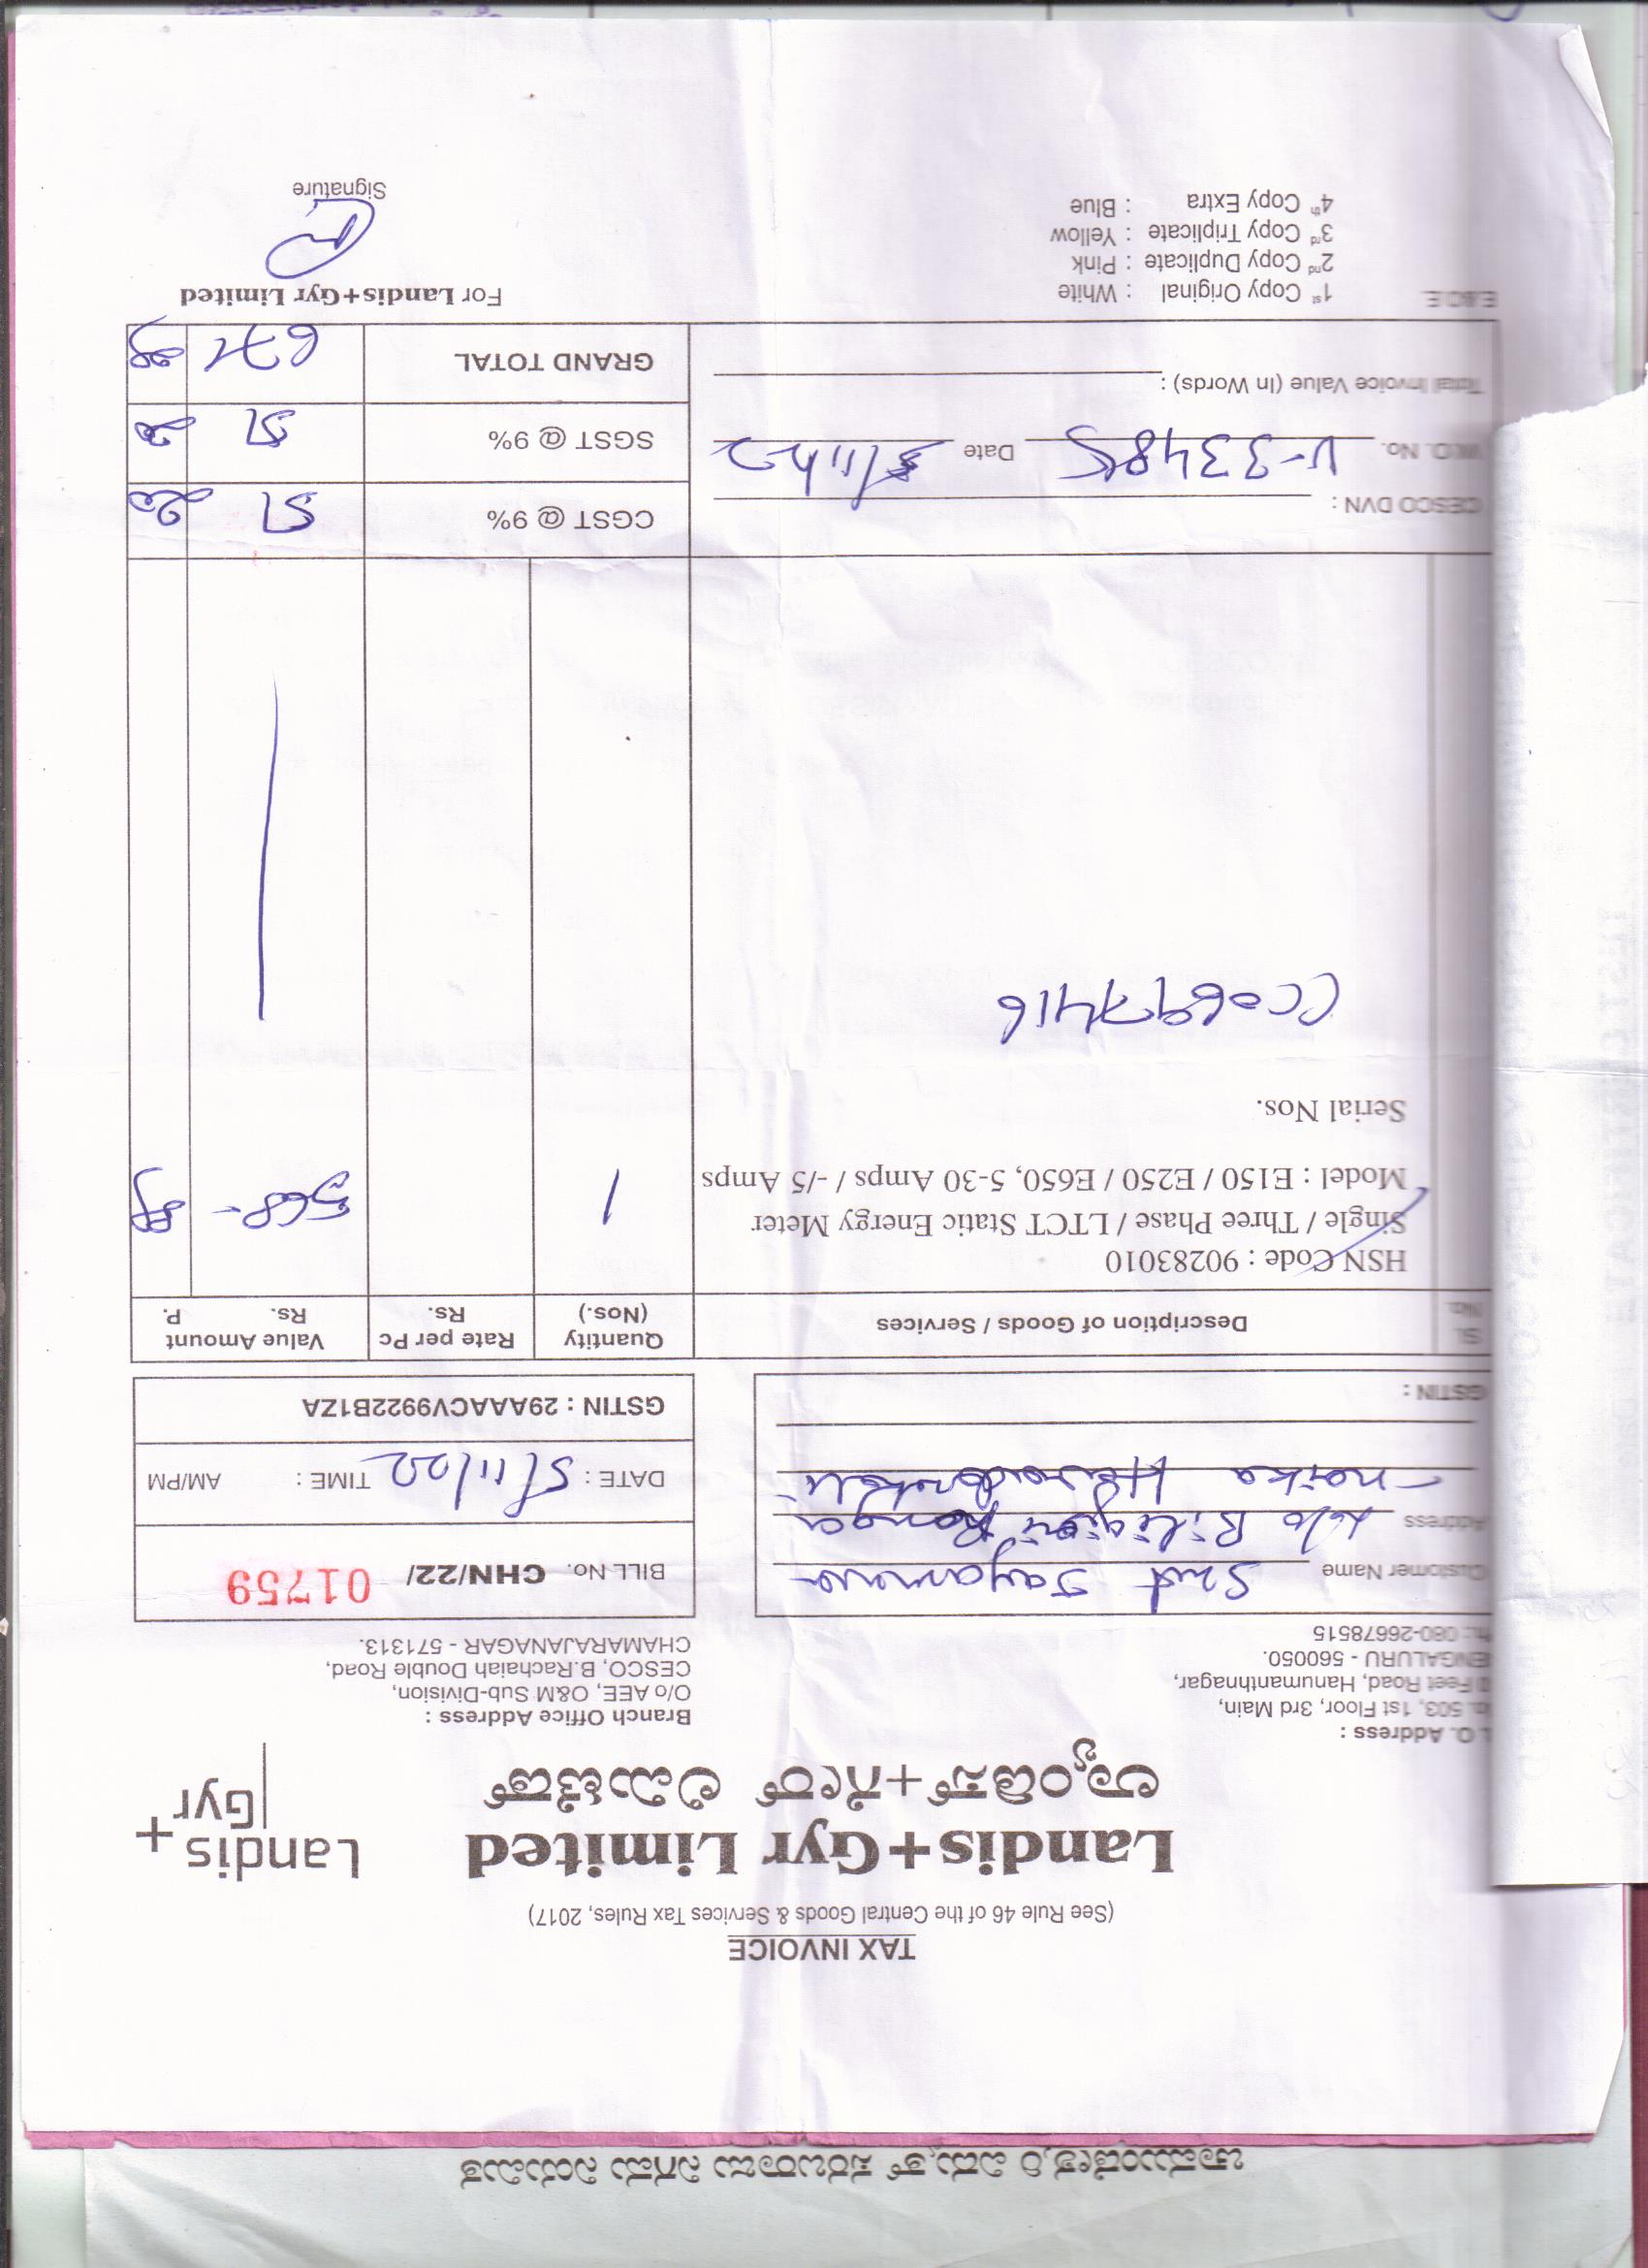 TAX INVOICE
(See Rule 46 of the Central Goods & Services Tax Rules, 2017)
Landis+Gyr Limited
ಲ್ಯಾಂಡಿಸ್+ಗೇರ್ ಲಿಮಿಟೆಡ್
Landis
Gyr+
O. Address :
503, 1st Floor, 3rd Main,
Feet Road, Hanumanthnagar,
ENGALURU - 560050.
080-26678515
Branch Office Address :
O/o AEE, O&M Sub-Division,
CESCO, B.Rachaiah Double Road,
CHAMARAJANAGAR - 571313.
Customer Name Smt Jayamma
Address Biligiri Ranga
naika
GSTIN :
BILL No. CHN/22/ 01759
DATE : 5/11/22 TIME : AM/PM
GSTIN : 29AAACV9922B1ZA
Sl. No. Description of Goods / Services Quantity (Nos.) Rate per Pc Rs. Value Amount Rs. P.
HSN Code : 90283010
Single / Three Phase / LTCT Static Energy Meter
Model : E150 / E250 / E650, 5-30 Amps / -/5 Amps
1 568-
Serial Nos.
CC0697416
CESCO DVN :
CGST @ 9% 51 20
W.O. No. V-33485 Date 5/11/22
SGST @ 9% 51 20
Total Invoice Value (In Words) :
GRAND TOTAL 671
E.&O.E.
1st Copy Original : White
2nd Copy Duplicate : Pink
3rd Copy Triplicate : Yellow
4th Copy Extra : Blue
For Landis+Gyr Limited
Signature